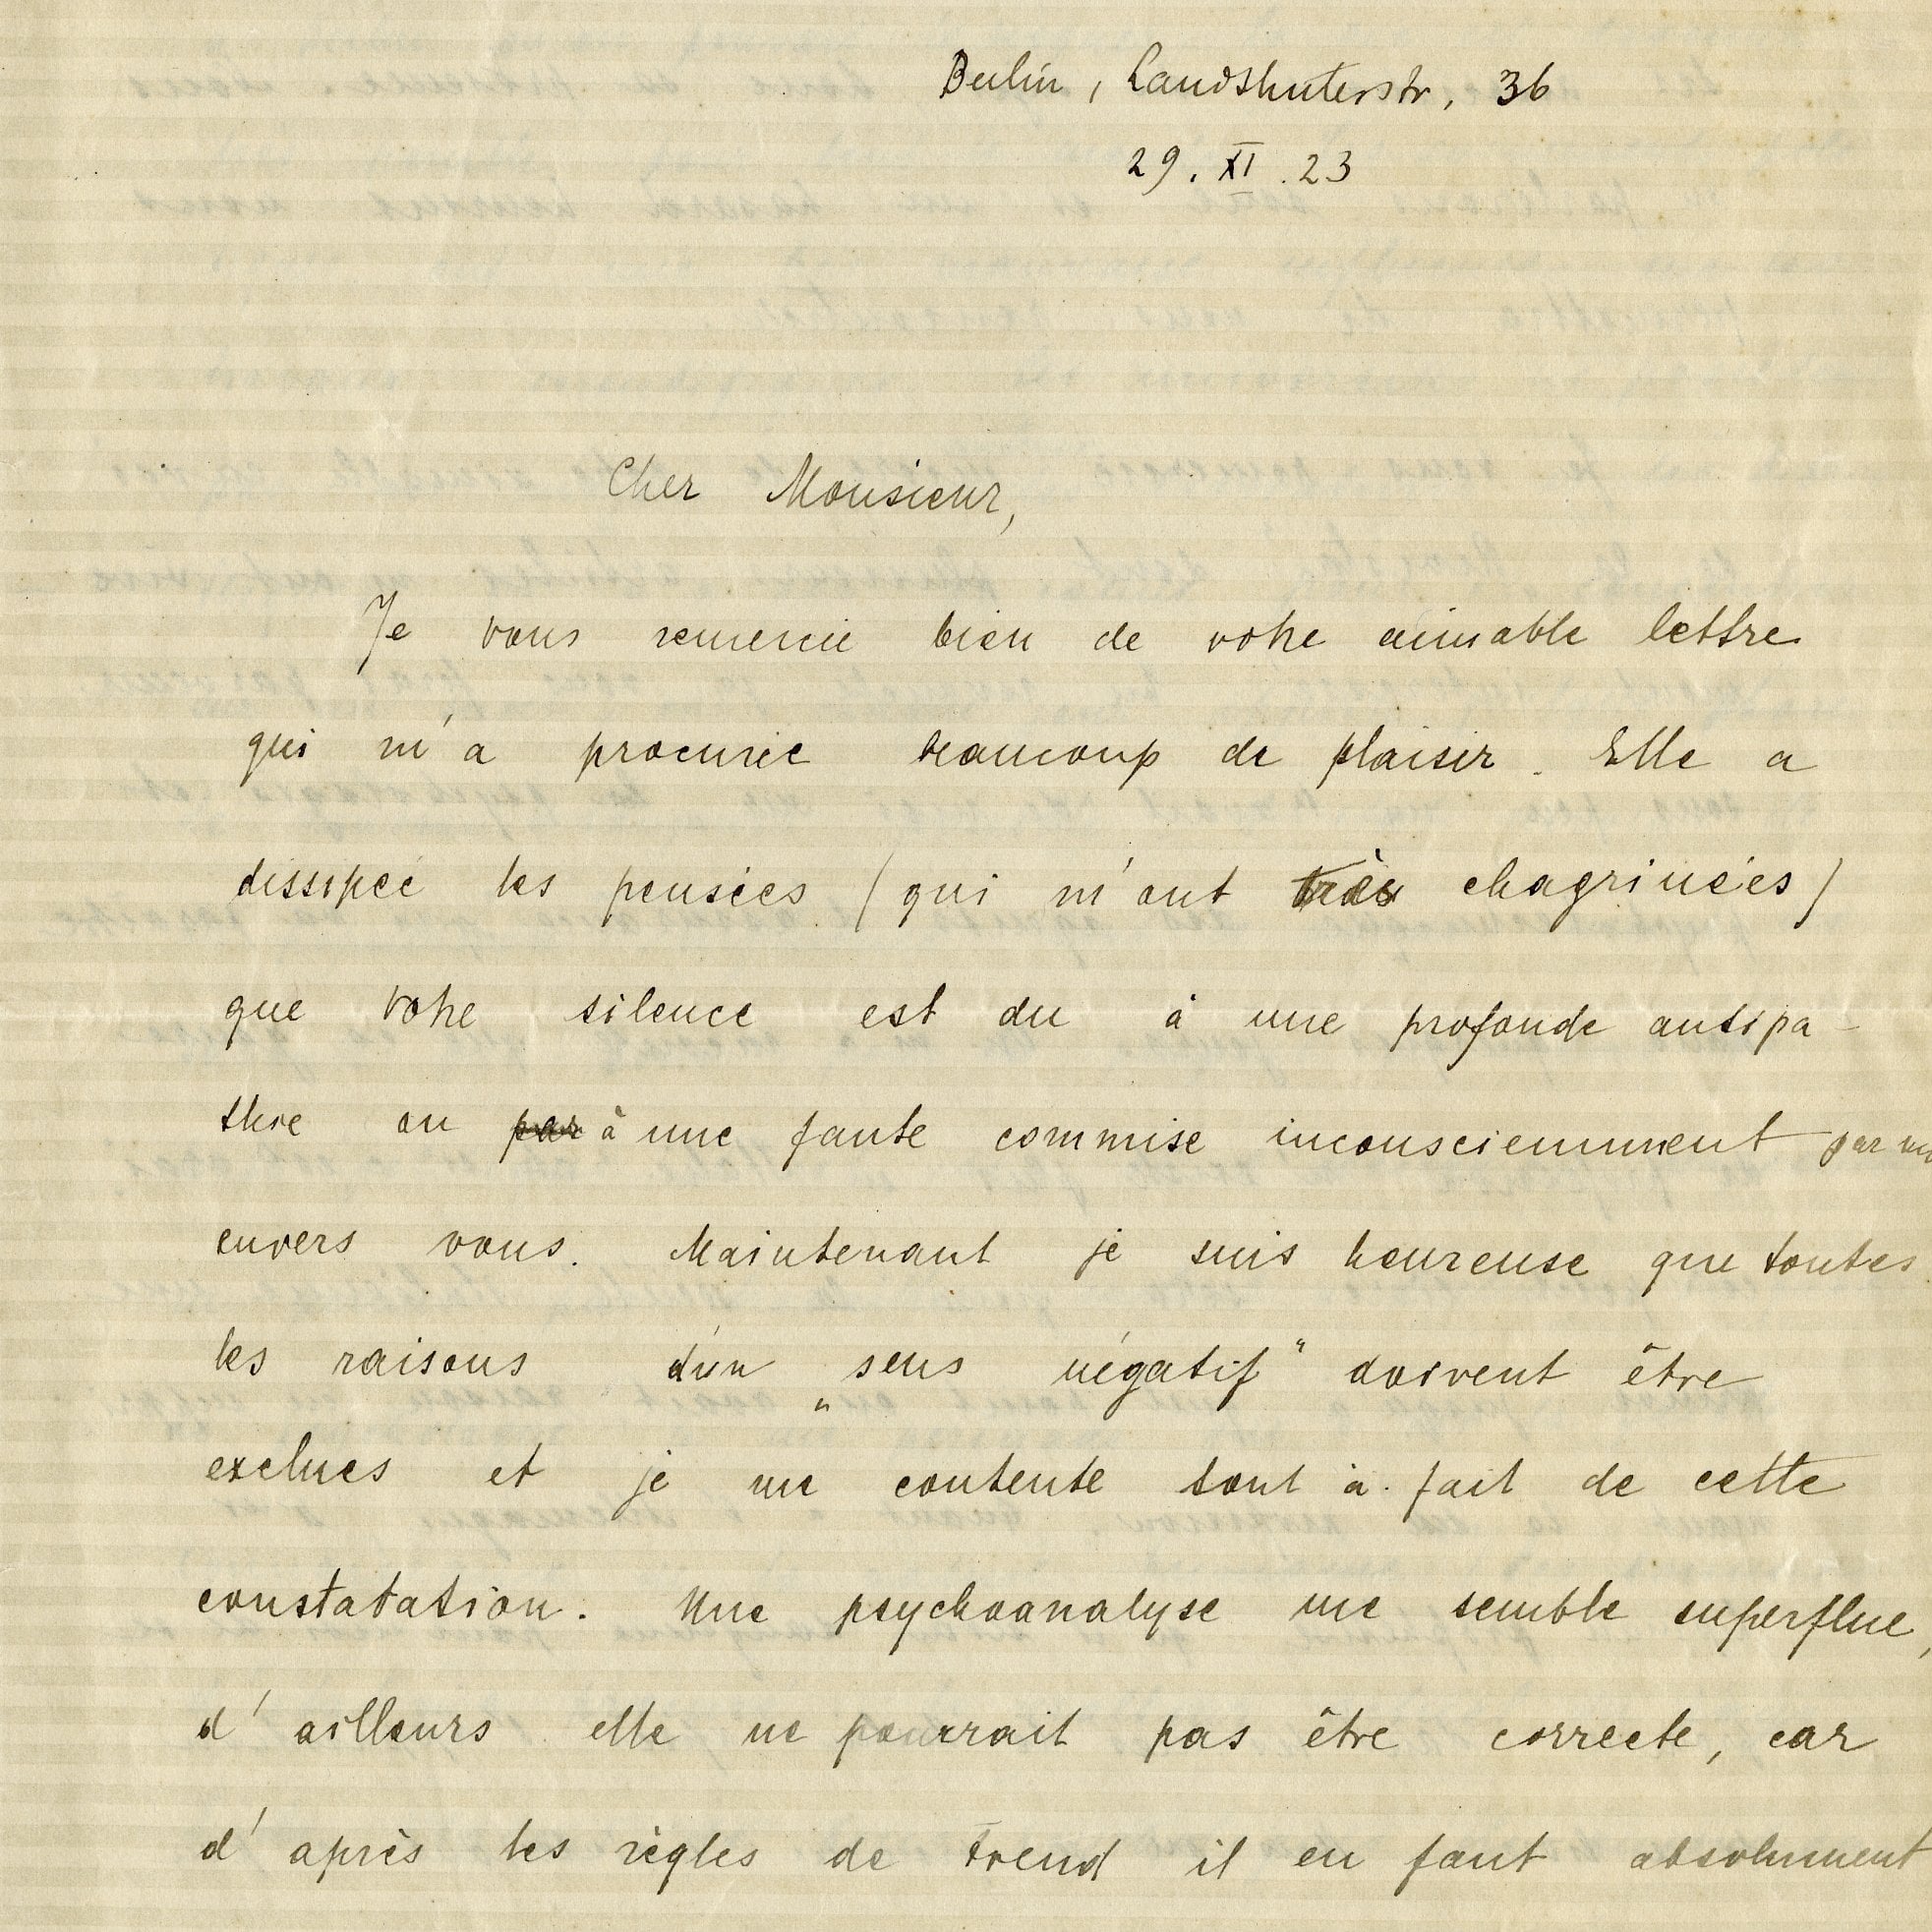 Berlin, Landshuterstr. 36
29. XI. 23
Cher Monsieur,
Je vous remercie bien de votre aimable lettre
qui m'a procurée beaucoup de plaisir. Elle a
dissipée les pensées (qui m'ont très chagrinées)
que votre silence est du à une profonde antipa-
thie ou par à une faute commise inconsciemment par
envers vous. Maintenant je suis heureuse que toutes
les raisons d'un „sens négatif“ doivent être
exclues et je me contente tout à fait de cette
constatation. Une psychoanalyse me semble superflue,
d'ailleurs elle ne pourrait pas être correcte, car
d'après les règles de Freud il en faut absolument